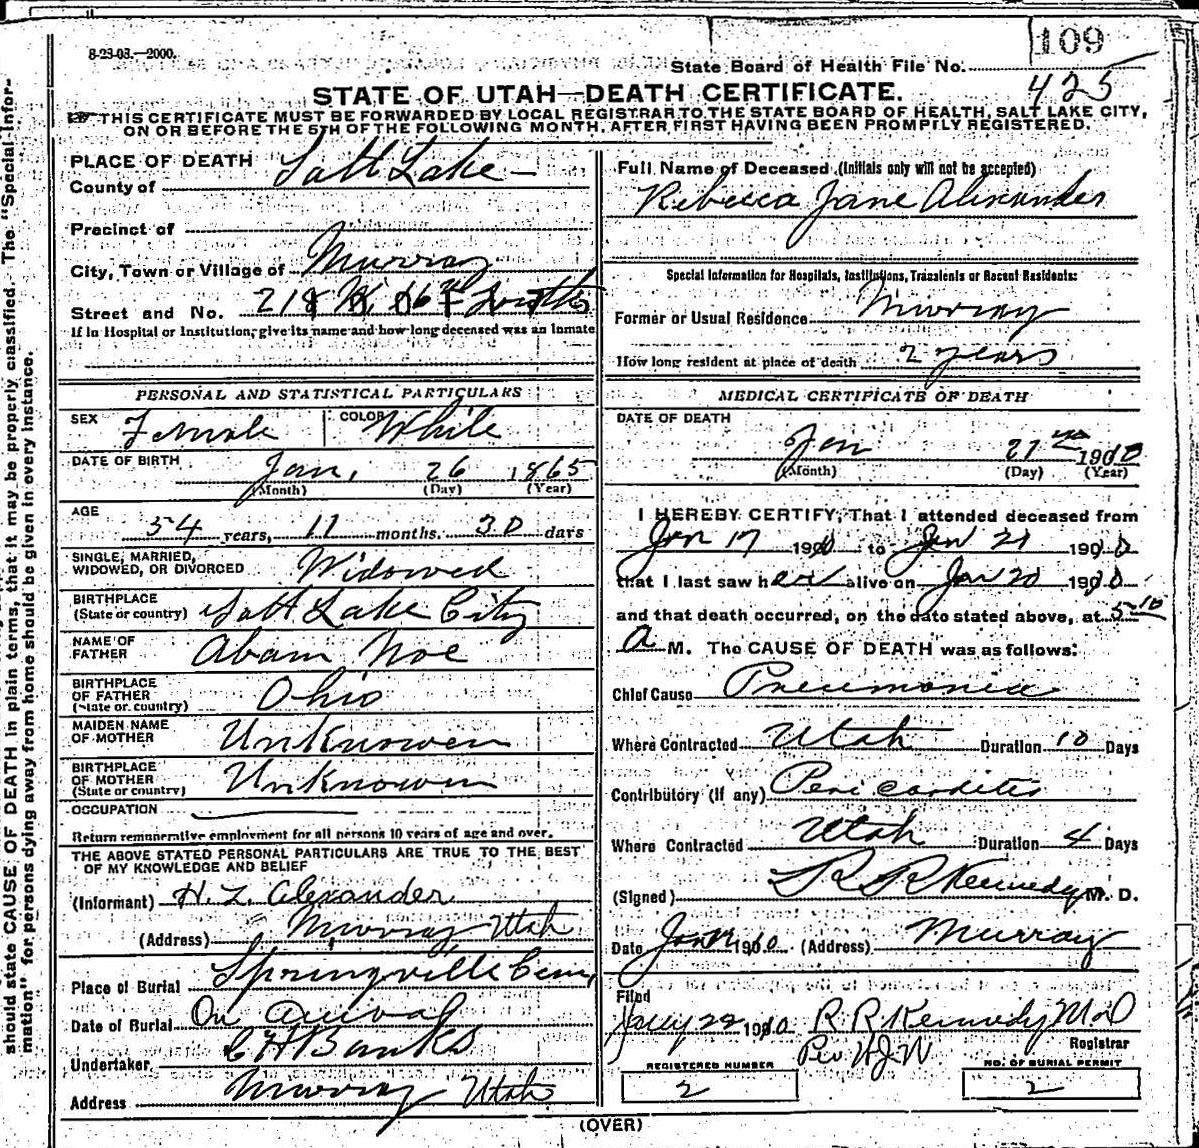 109
8-23-08.—2000.
State Board of Health File No.
425
STATE OF UTAH—DEATH CERTIFICATE.
THIS CERTIFICATE MUST BE FORWARDED BY LOCAL REGISTRAR TO THE STATE BOARD OF HEALTH, SALT LAKE CITY,
ON OR BEFORE THE 5TH OF THE FOLLOWING MONTH, AFTER FIRST HAVING BEEN PROMPTLY REGISTERED.
should state CAUSE OF DEATH in plain terms, that it may be properly classified. The "Special Infor-
mation" for persons dying away from home should be given in every instance.
PLACE OF DEATH
County of Salt Lake
Precinct of
City, Town or Village of Murray
Street and No. 218 W 6th South
If in Hospital or Institution, give its name and how long deceased was an inmate
PERSONAL AND STATISTICAL PARTICULARS
SEX Female COLOR White
DATE OF BIRTH Jan. 26 1865
(Month) (Day) (Year)
AGE
54 years, 11 months. 30 days
SINGLE, MARRIED,
WIDOWED, OR DIVORCED Widowed
BIRTHPLACE
(State or country) Salt Lake City
NAME OF
FATHER Abam Noe
BIRTHPLACE
OF FATHER
(State or country) Ohio
MAIDEN NAME
OF MOTHER Unknowen
BIRTHPLACE
OF MOTHER
(State or country) Unknowen
OCCUPATION
Return remunerative employment for all persons 10 years of age and over.
THE ABOVE STATED PERSONAL PARTICULARS ARE TRUE TO THE BEST
OF MY KNOWLEDGE AND BELIEF
(Informant) H. L. Alexander
(Address) Murray Utah
Place of Burial Springville Cem,
Date of Burial On arival
Undertaker C H Banks
Address Murray Utah
Full Name of Deceased (Initials only will not be accepted)
Rebecca Jane Alexander
Special Information for Hospitals, Institutions, Transients or Recent Residents:
Former or Usual Residence Murray
How long resident at place of death 2 years
MEDICAL CERTIFICATE OF DEATH
DATE OF DEATH
Jan 21 1910
(Month) (Day) (Year)
I HEREBY CERTIFY, That I attended deceased from
Jan 17 1910 to Jan 21 1910
that I last saw her alive on Jan 20 1910
and that death occurred, on the date stated above, at 5-10
A M. The CAUSE OF DEATH was as follows:
Chief Cause Pneumonia
Where Contracted Utah Duration 10 Days
Contributory (If any) Peri Carditis
Where Contracted Utah Duration 4 Days
(Signed) R R Kennedy M. D.
Date Jan 1910 (Address) Murray
Filed
Jany 22 1910 R R Kennedy M D
Per H J W Registrar
REGISTERED NUMBER
2
NO. OF BURIAL PERMIT
2
(OVER)